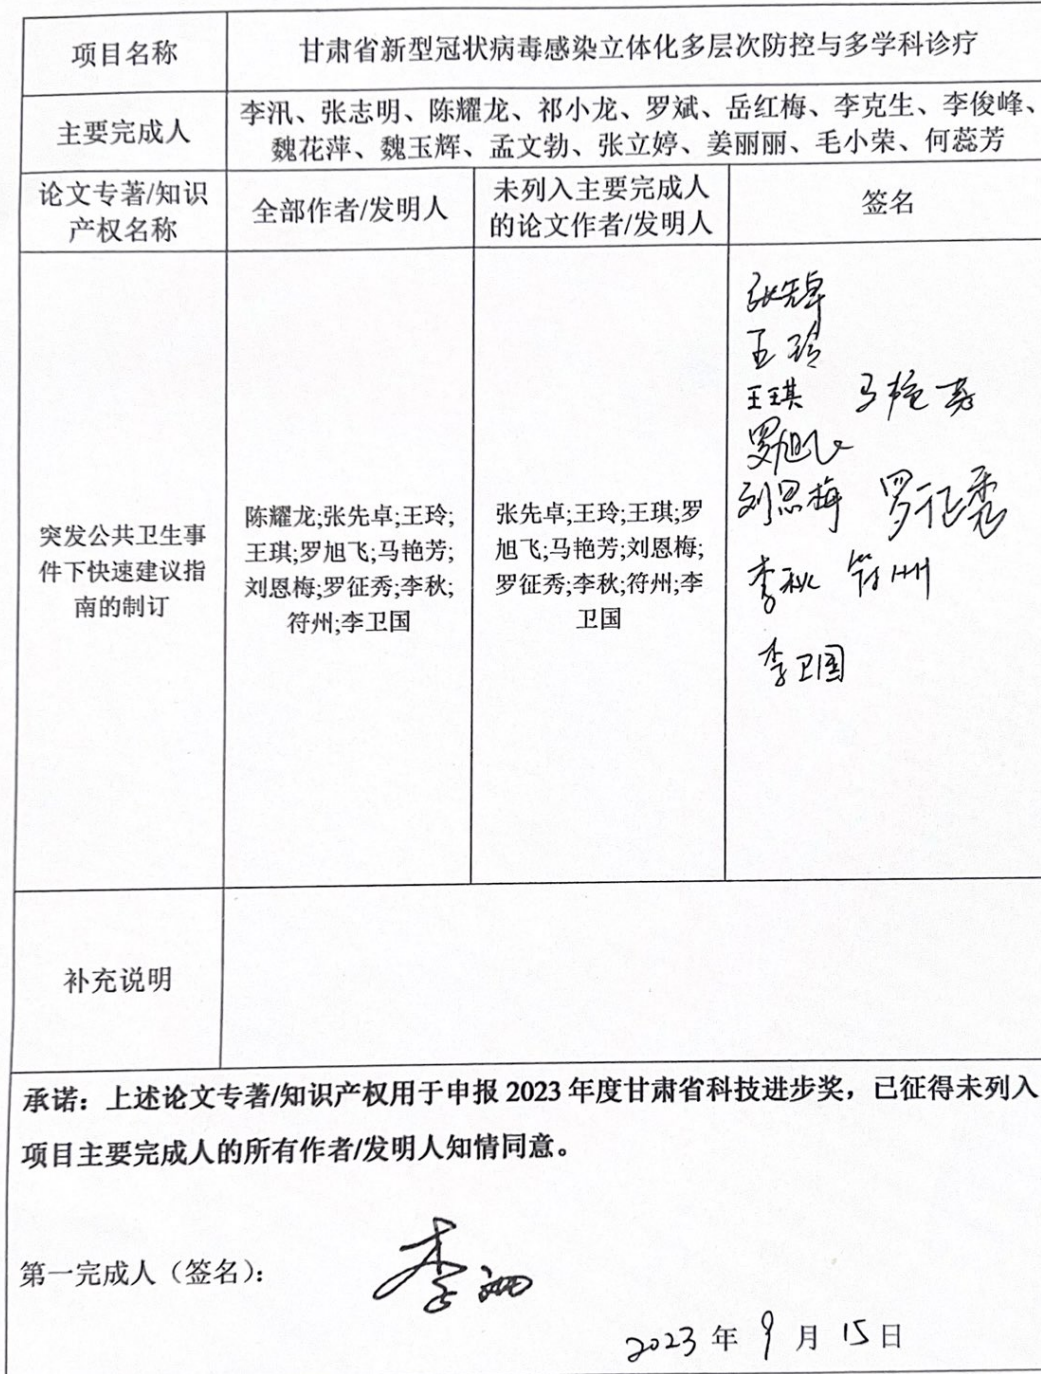 项目名称
甘肃省新型冠状病毒感染立体化多层次防控与多学科诊疗
主要完成人
李汛、张志明、陈耀龙、祁小龙、罗斌、岳红梅、李克生、李俊峰、
魏花萍、魏玉辉、孟文勃、张立婷、姜丽丽、毛小荣、何蕊芳
论文专著/知识
产权名称
全部作者/发明人
未列入主要完成人
的论文作者/发明人
签名
突发公共卫生事
件下快速建议指
南的制订
陈耀龙;张先卓;王玲;
王琪;罗旭飞;马艳芳;
刘恩梅;罗征秀;李秋;
符州;李卫国
张先卓;王玲;王琪;罗
旭飞;马艳芳;刘恩梅;
罗征秀;李秋;符州;李
卫国
张先卓
王玲
王琪 马艳芳
罗旭飞
刘恩梅 罗征秀
李秋 符州
李卫国
补充说明
承诺：上述论文专著/知识产权用于申报 2023 年度甘肃省科技进步奖，已征得未列入
项目主要完成人的所有作者/发明人知情同意。
第一完成人（签名）： 李汛
2023 年 9 月 15 日